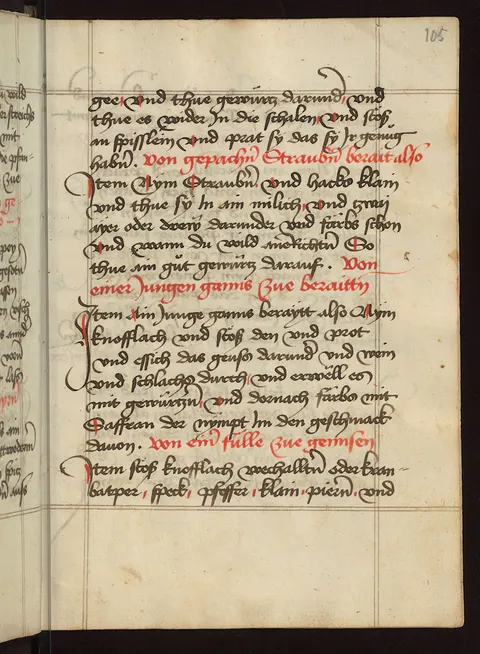 105
gee und thue gewürtz darund und
thue es wider in die schalen und stoß
an spisslein und prat sy das sy Ir genůg
habn̄. von gepachn̄ Straubn̄ berait also
Item Nym Straubn̄ und hacks klain
und thue sy In ain milich und zway
ayer oder drew darunder und färbs schon
und wann du wild anrichtn̄ So
thue ain gůt gewürtz darauf. Von
einer Jungen ganns zue beraittn̄
Item Ain Junge ganns beraytt also Nym
knofflach und stoß den und prot
und essich das geuß darund und wein
und schlachs durch und erwell es
mit gewürtzn̄ und dornach färbs mit
Saffran der nympt In den geschmack
davon. von ein̄ fülle zue gennsen
Item stoß knofflach wechalltn̄ oder kran-
batper speck pfeffer klain piern̄ und